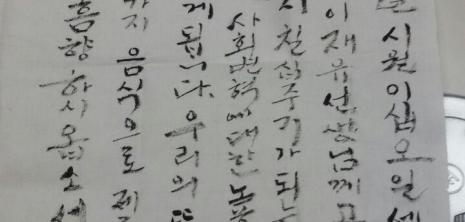 시월이십오일
이재유선생님께고
칠십주기가되는
사회변혁에대한
게됩니다. 우리의
가지 음식으로
흠향 하시옵소서